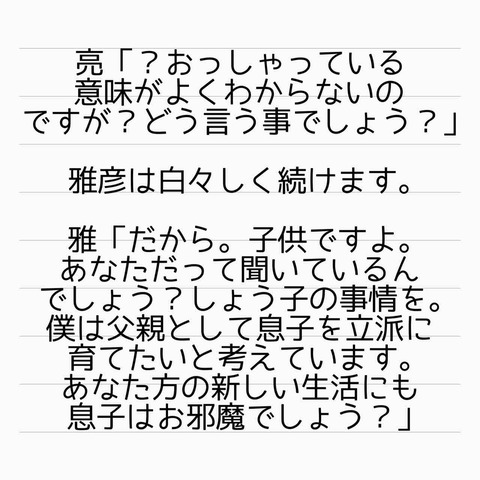 亮「？おっしゃっている
意味がよくわからないの
ですが？どう言う事でしょう？」
雅彦は白々しく続けます。
雅「だから。子供ですよ。
あなただって聞いているん
でしょう？しょう子の事情を。
僕は父親として息子を立派に
育てたいと考えています。
あなた方の新しい生活にも
息子はお邪魔でしょう？」